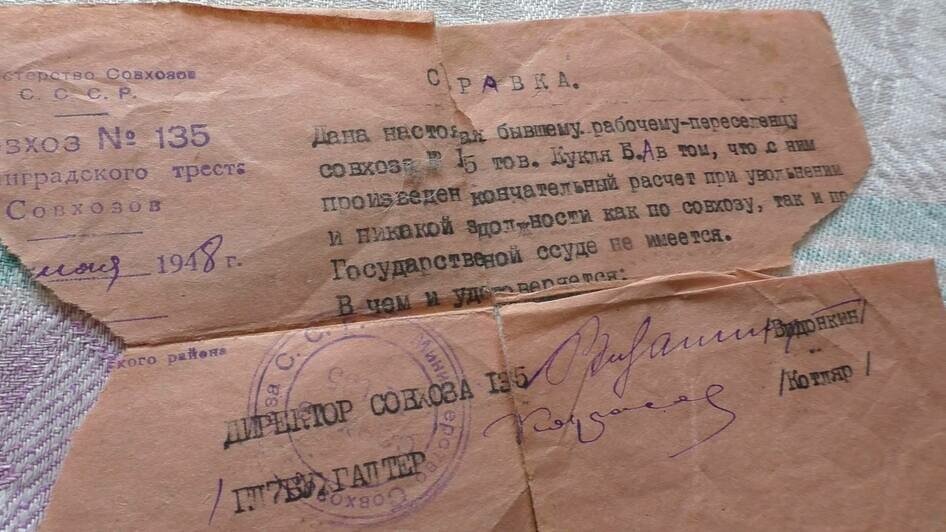 стерство Совхозов
С. С. С. Р.
овхоз № 135
нградского треста
Совхозов
1948 г.
кого района
СПРАВКА.
Дана настоящая бывшему рабочему-переселенцу
совхоза № 135 тов. Кукля Б.А в том, что с ним
произведен кончательный расчет при увольнении
и никакой здолжности как по совхозу, так и по
Государственой ссуде не имеется.
В чем и удстоверяется:
ДИРЕКТОР СОВХОЗА 135
/Видонкин/
/ГЛ БУХГАЛТЕР
/Котляр /
Министерство Совхоз